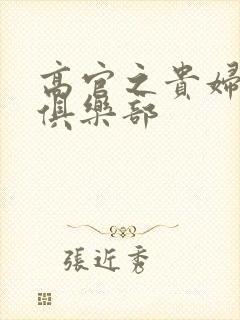 高官之貴婦
俱樂部
張近秀